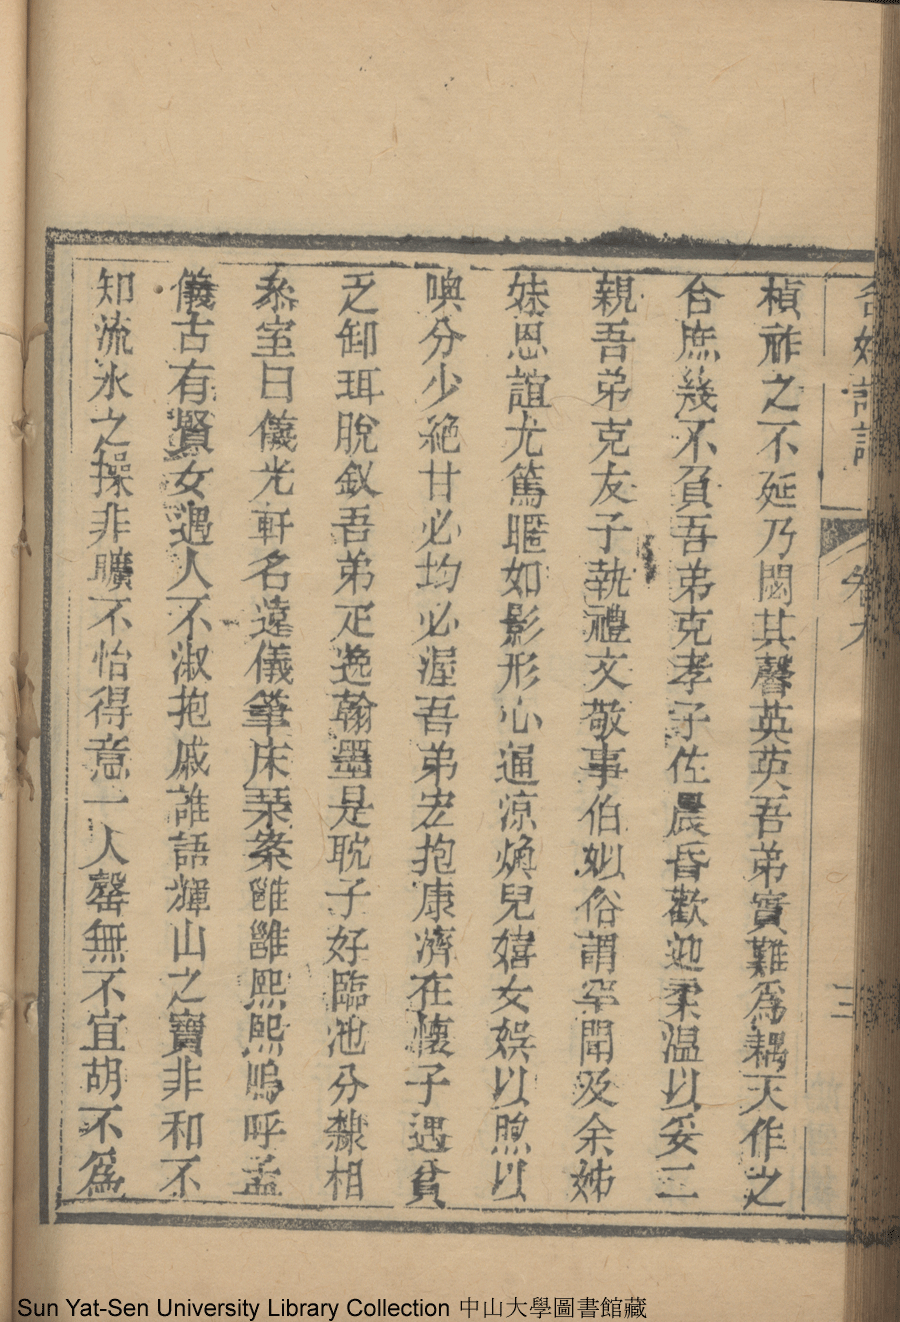 卷九
三
楨祚之不延乃閟其馨英英吾弟實難為耦天作之
合庶幾不負吾弟克孝子佐晨昏歡迎柔温以妥二
親吾弟克友子執禮文敬事伯姒俗謂罕聞及余姊
妹恩誼尤篤暱如影形心逼凉煥兒嬉女娯以煦以
噢分少絶甘必均必渥吾弟宏抱康濟在懐子遇貧
乏卸珥脫釵吾弟疋逸翰墨是耽子好臨池分隸相
叅室曰儀光軒名遠儀筆床琹案雝雝熙熙嗚呼孟
儀古有賢女遇人不淑抱戚誰語輝山之寶非和不
知流水之操非曠不怡得意一人罄無不宜胡不為
Sun Yat-Sen University Library Collection 中山大學圖書館藏